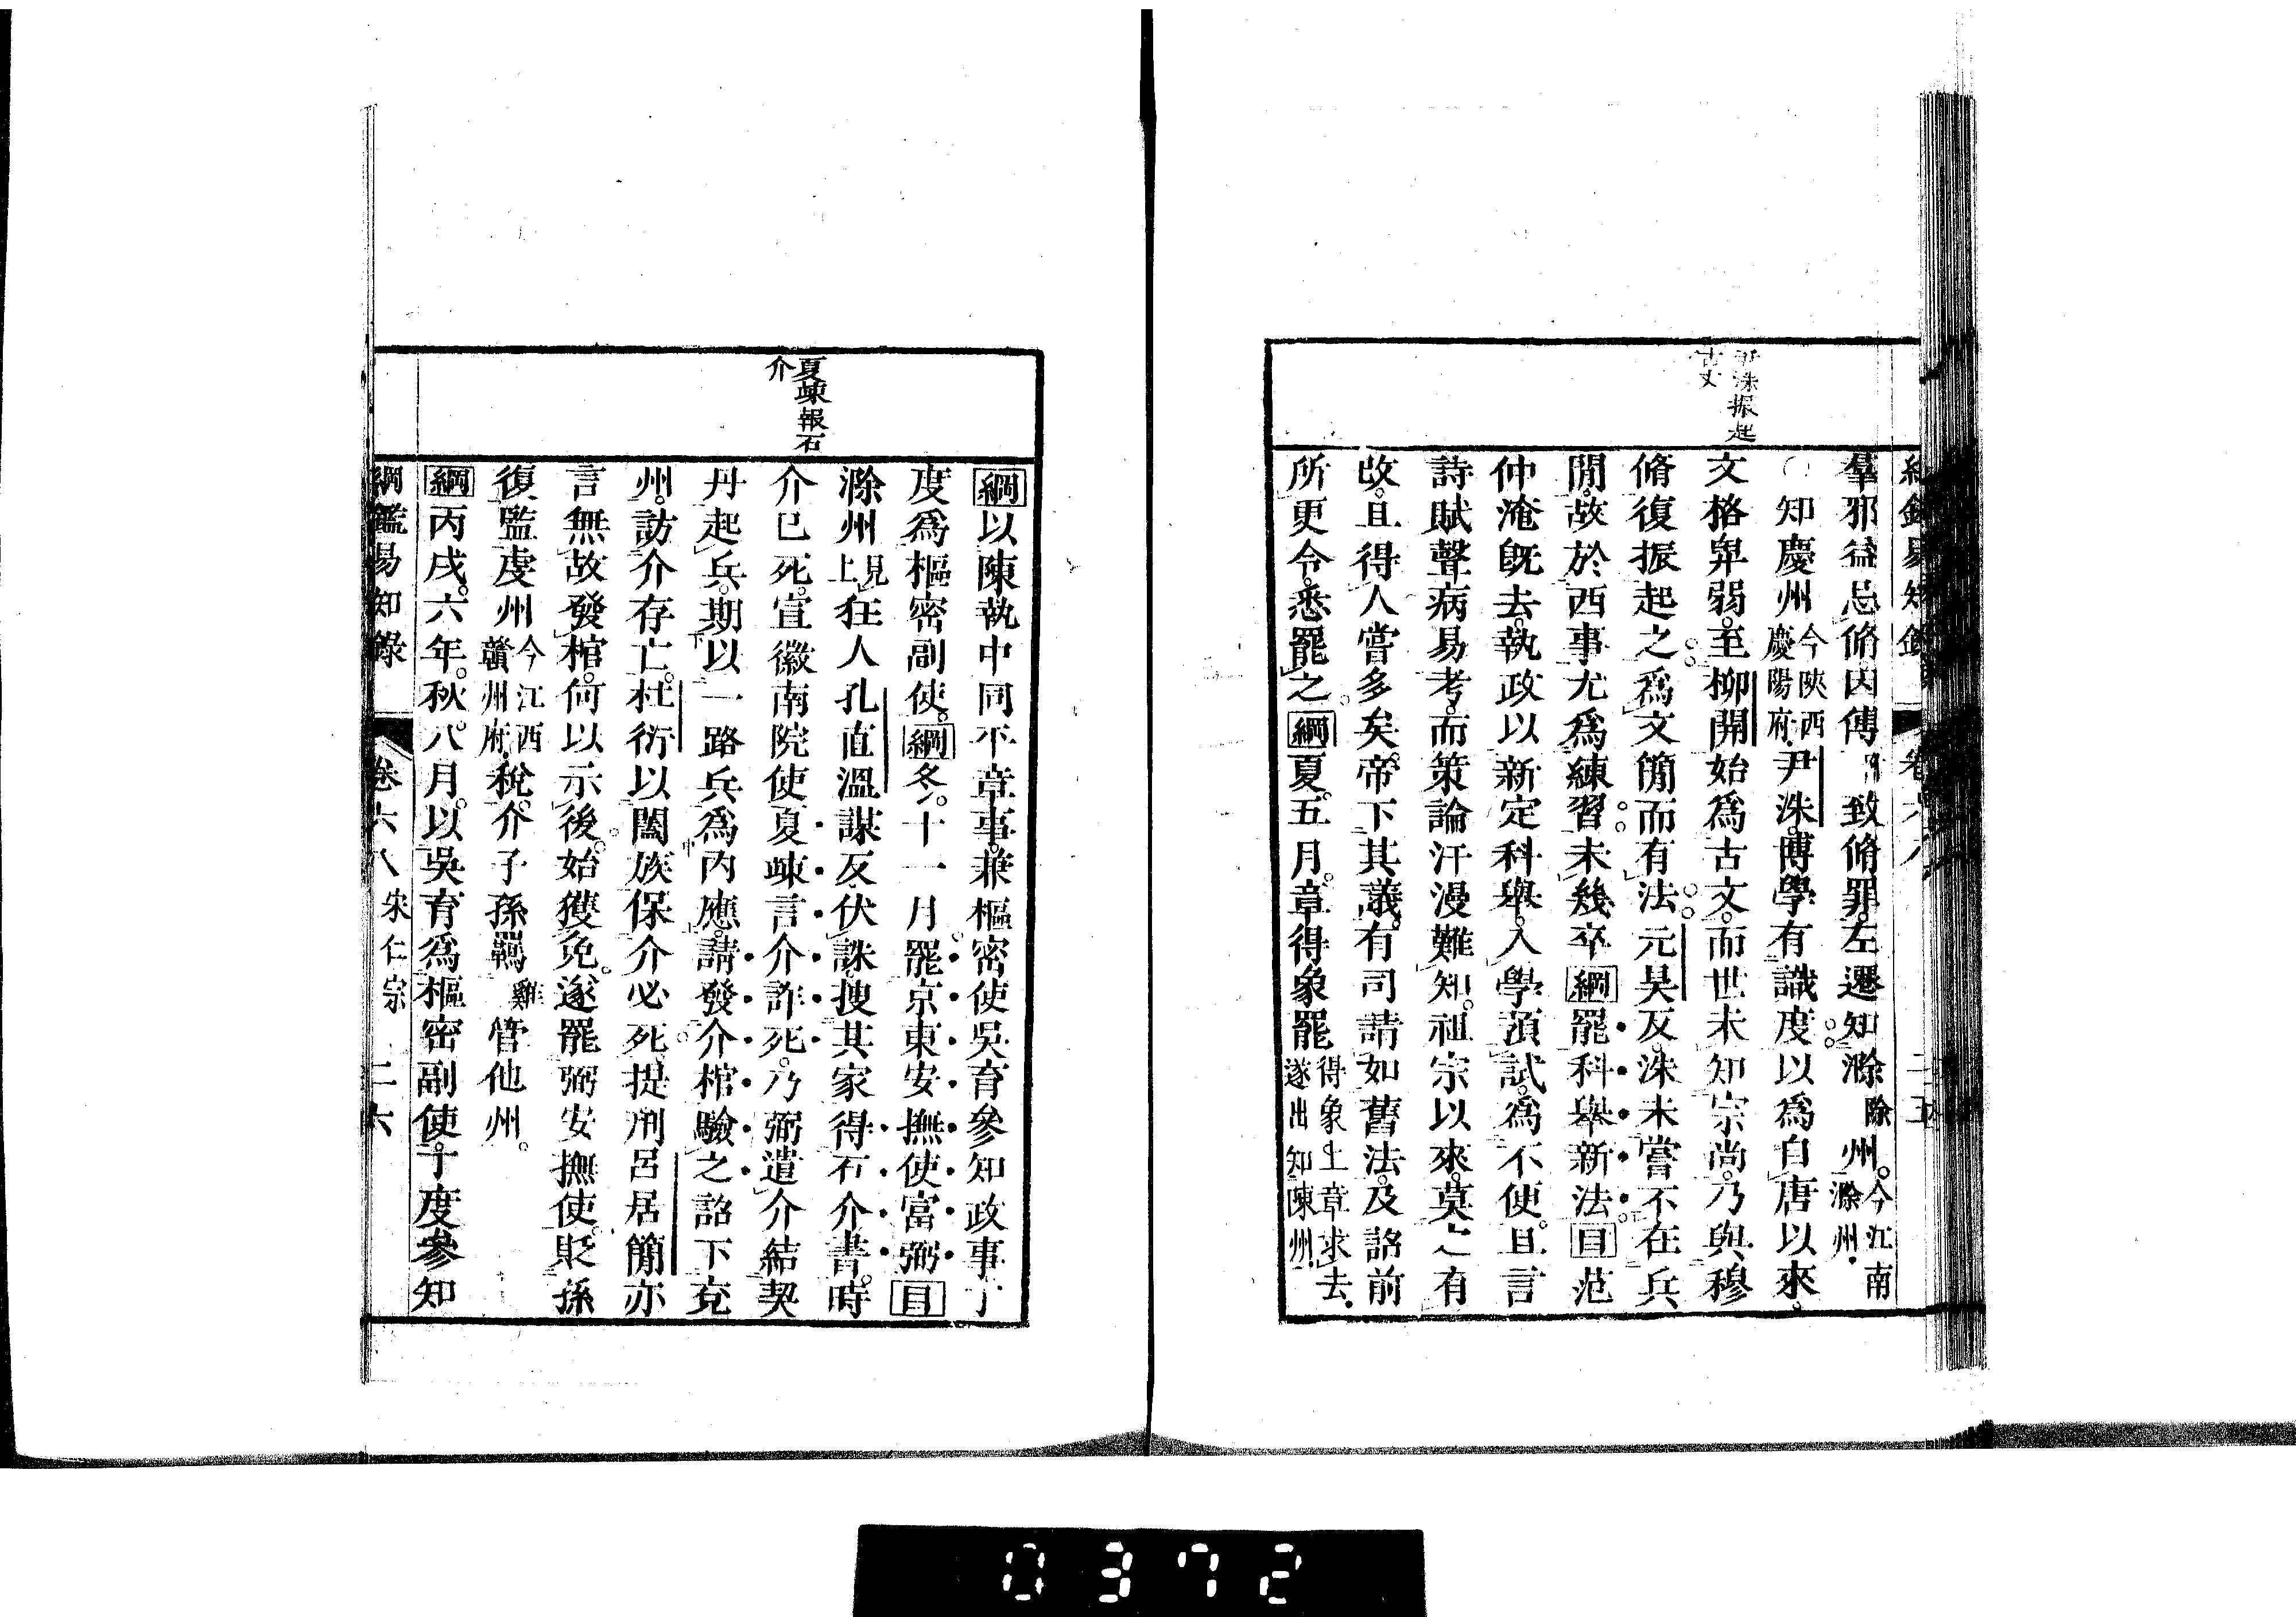 洙振起
古文
羣邪益忌脩因傅致脩罪左遷知滁除州。今江南滁州.
○知慶州今陝西慶陽府.尹洙。博學有識度。以爲自唐以來。
文格卑弱。至柳開始爲古文。而世未知宗尚。乃與穆
脩復振起之。爲文簡而有法。元昊反。洙未嘗不在兵
閒。故於西事尤爲練習。未幾卒綱罷科舉新法目范
仲淹旣去。執政以新定科舉。入學預試。爲不便。且言
詩賦聲病易考。而策論汗漫難知。祖宗以來。莫之有
改。且得人嘗多矣。帝下其議。有司請如舊法。及詔前
所更令。悉罷之綱夏。五月。章得象罷得象上章求去.遂出知陳州.
夏竦報石
介
綱以陳執中同平章事。兼樞密使吳育參知政事丁
度爲樞密副使。綱冬。十一月罷京東安撫使富弼目
滁州見上狂人孔直溫謀反伏誅。搜其家得石介書。時
介已死。宣徽南院使夏竦言介詐死。乃弼遣介結契
丹起兵。期以一路兵爲內應。請發介棺驗之詔下兗
州。訪介存亡。杜衍以闔族保介必死。提刑呂居簡亦
言無故發棺。何以示後。始獲免。遂罷弼安撫使。貶孫
復監虔州今江西贛州府.稅。介子孫羈雞管他州。
綱丙戌。六年。秋。八月。以吳育爲樞密副使。丁度參知
綱鑑易知錄 卷六八 宋仁宗 二六